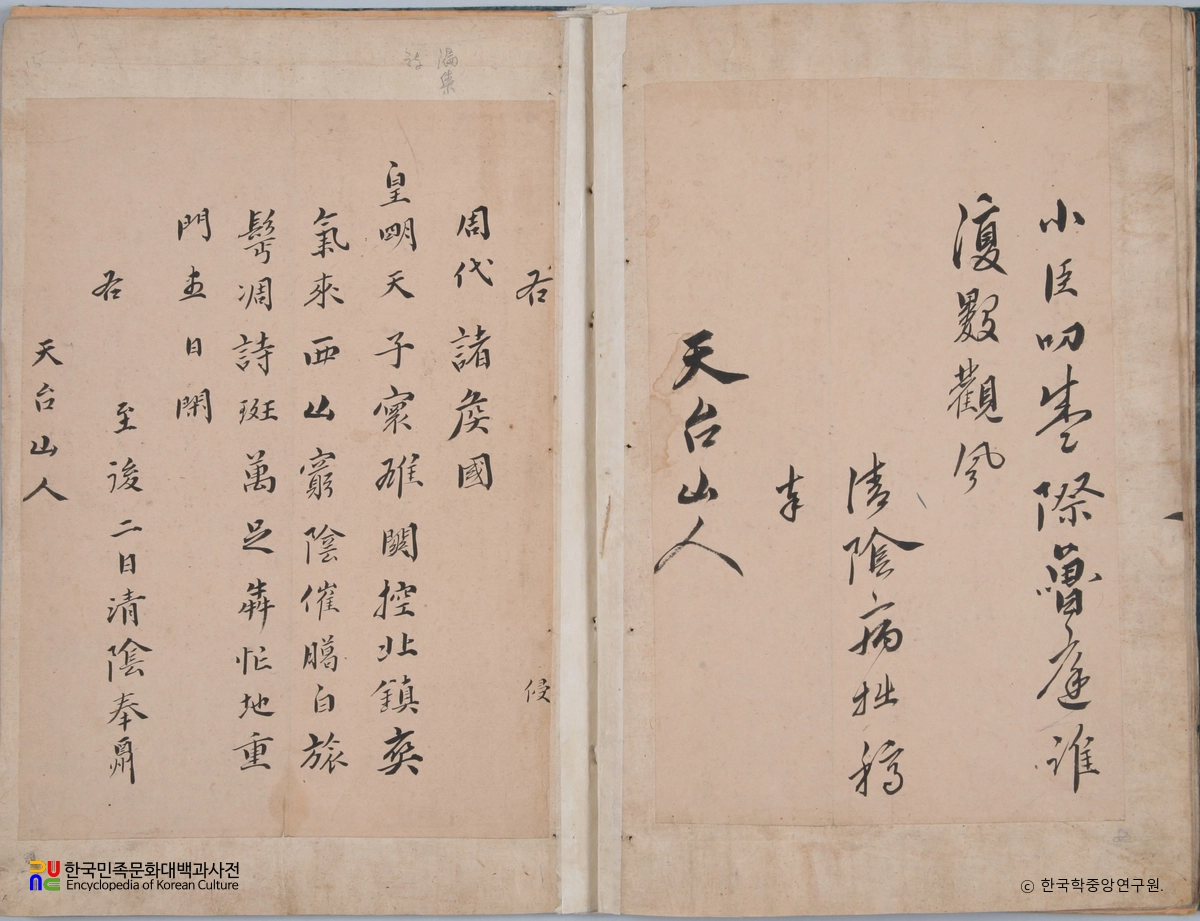 小臣叨盛際庭誰
復數觀風
清陰病拙稿
奉
天台山人
右 侵
周代諸侯國
皇明天子寰雄關控北鎮爽
氣來西山窮陰催臘白旅
髩凋詩斑萬足犇忙地重
門日閑
右 至後二日清陰奉
天台山人
漏集
한국민족문화대백과사전
Encyclopedia of Korean Culture
© 한국학중앙연구원.